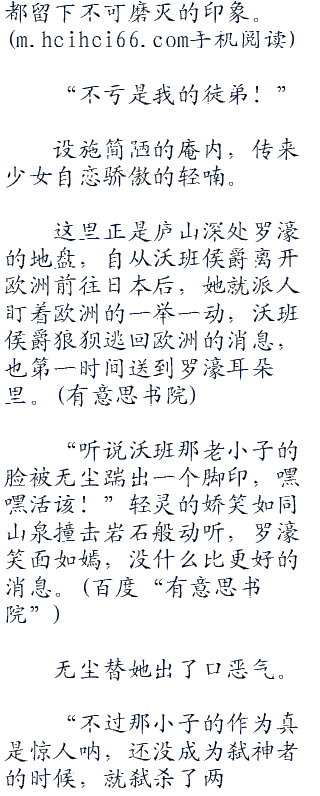 都留下不可磨灭的印象。
(m.hcihci66.com手机阅读)
“不亏是我的徒弟！”
设施简陋的庵内，传来
少女自恋骄傲的轻喃。
这里正是庐山深处罗濠
的地盘，自从沃班侯爵离开
欧洲前往日本后，她就派人
盯着欧洲的一举一动，沃班
侯爵狼狈逃回欧洲的消息，
也第一时间送到罗濠耳朵
里。(有意思书院)
“听说沃班那老小子的
脸被无尘踹出一个脚印，嘿
嘿活该！”轻灵的娇笑如同
山泉撞击岩石般动听，罗濠
笑面如嫣，没什么比更好的
消息。(百度“有意思书
院”)
无尘替她出了口恶气。
“不过那小子的作为真
是惊人呐，还没成为弑神者
的时候，就弑杀了两